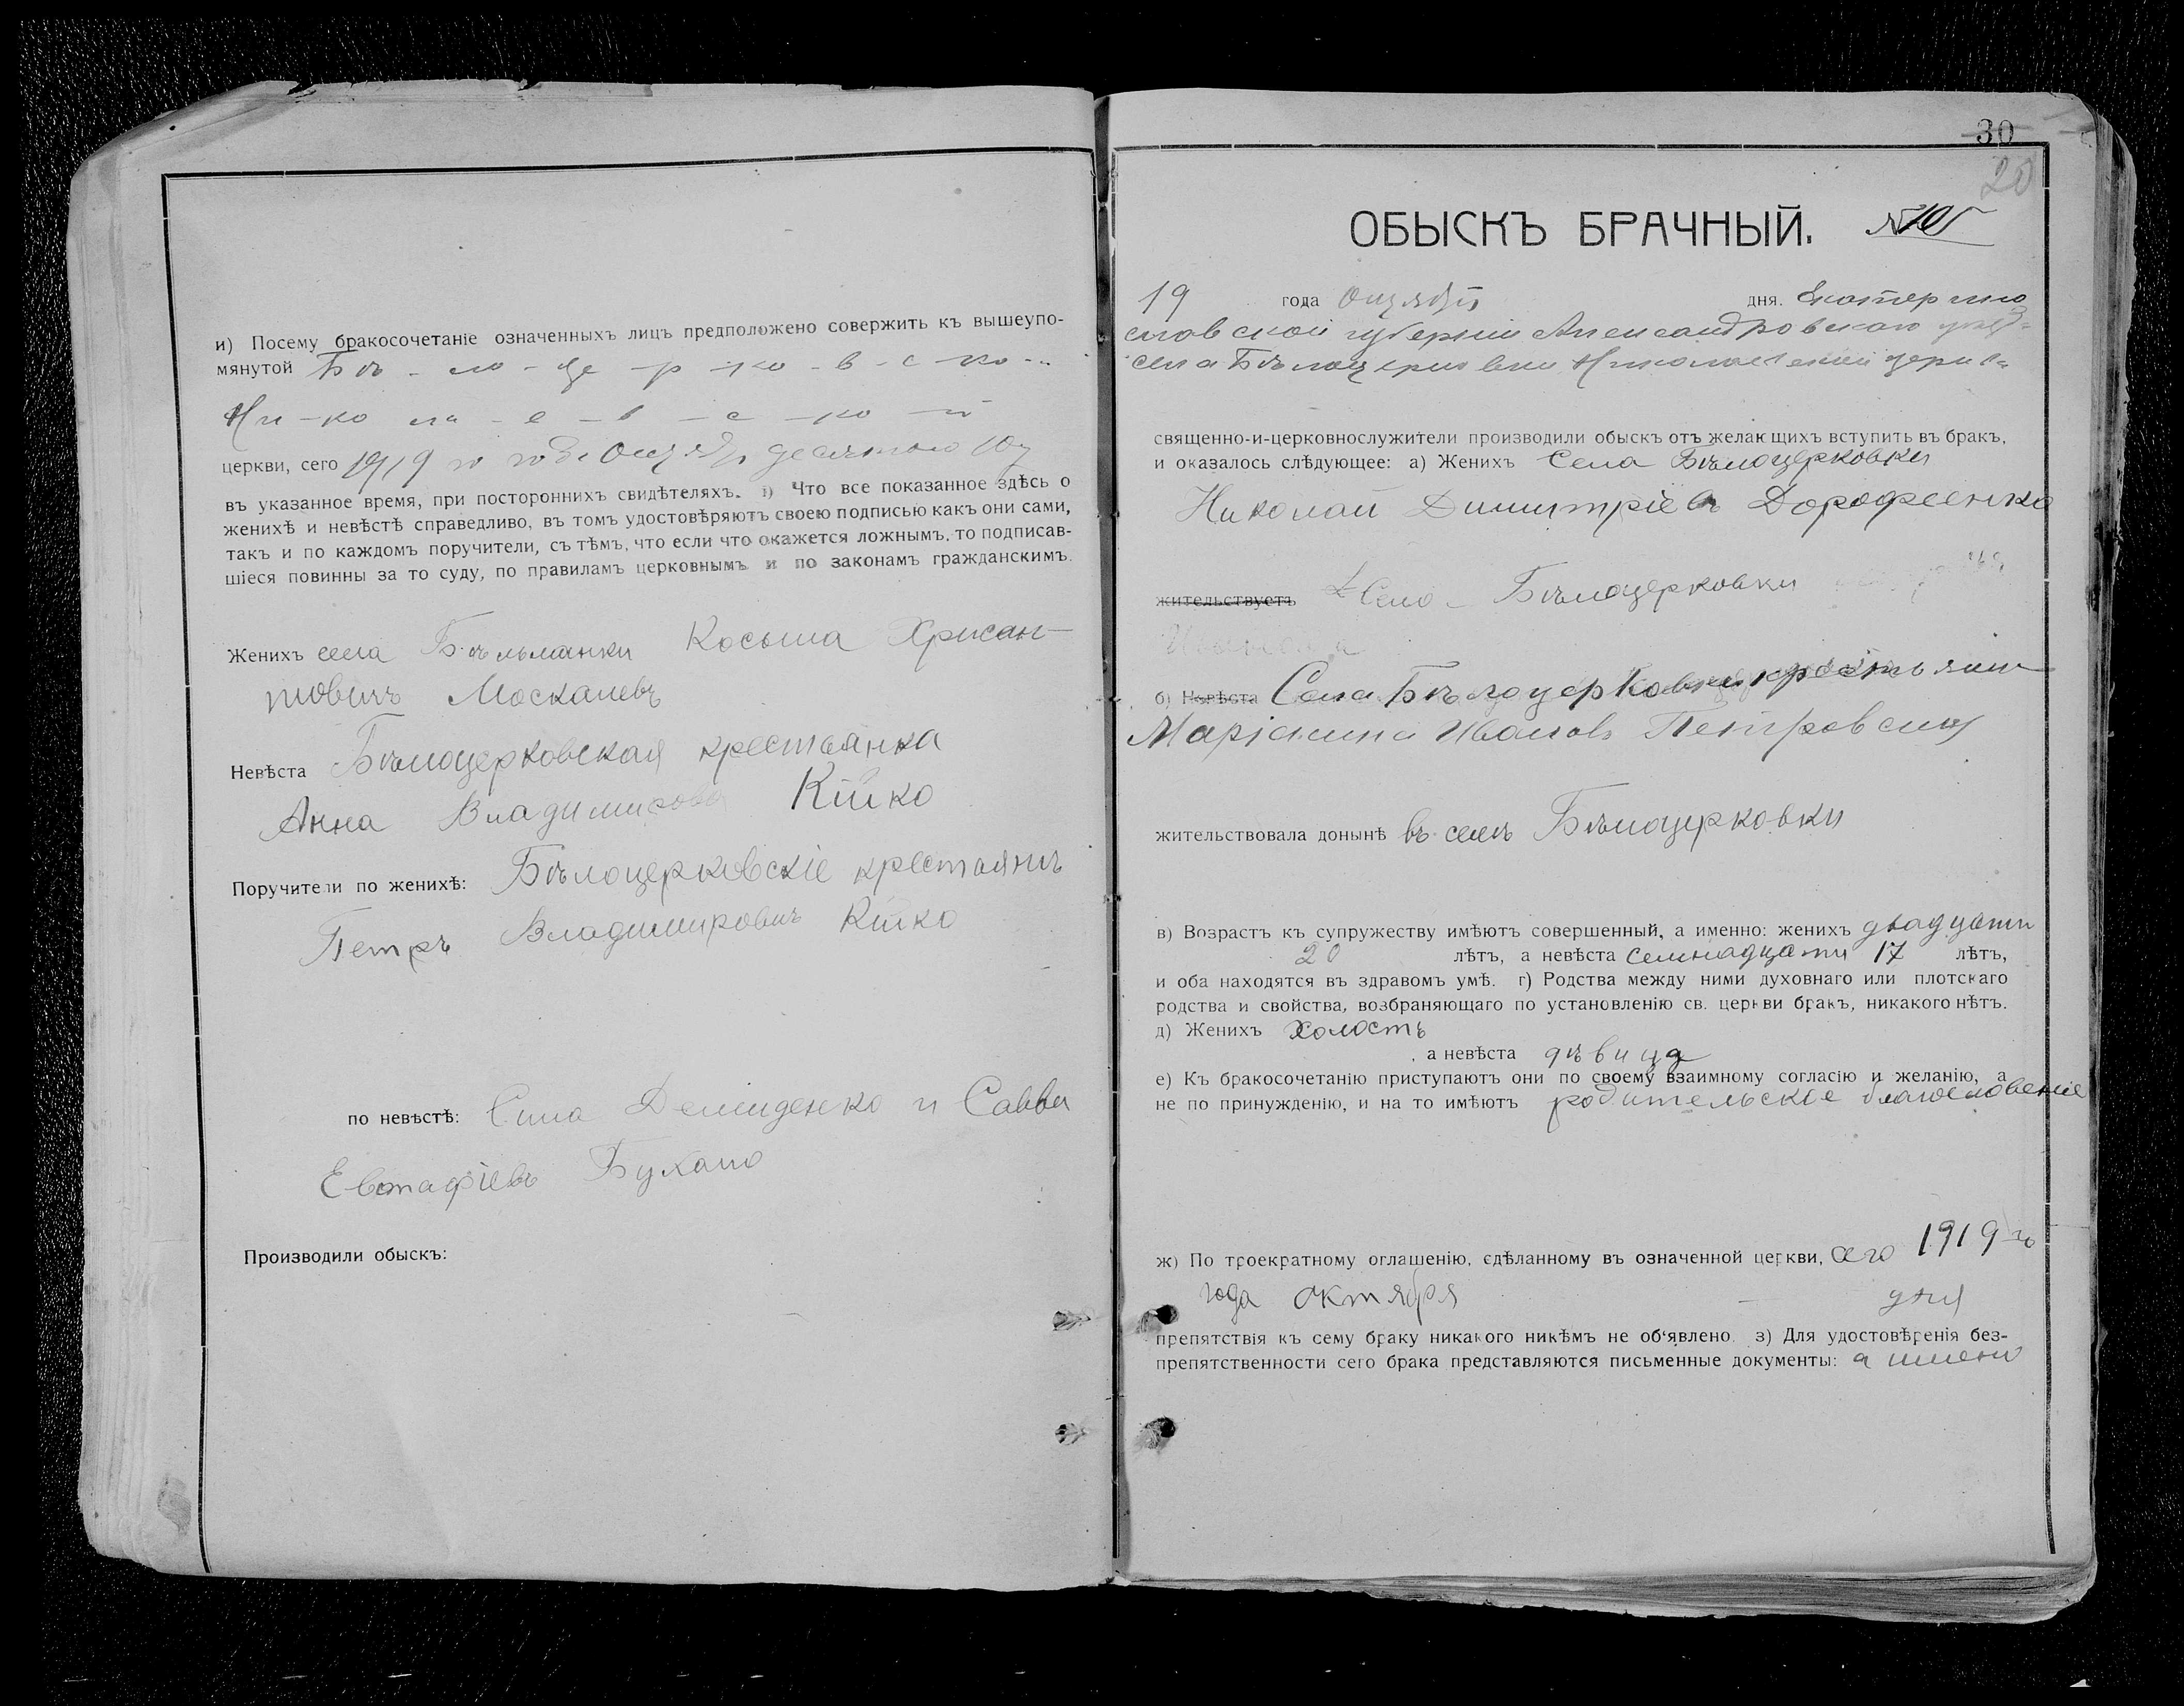 и) Посему бракосочетаніе означенныхъ лицъ предположено совержить къ вышеупо-
мянутой Бѣ - ло - це - р - ко - в - с - ко -
Ни - ко ла - е - в - с - ко - й
церкви, сего 1919 го года десятаго 10
въ указанное время, при постороннихъ свидѣтеляхъ. і) Что все показанное здѣсь о
женихѣ и невѣстѣ справедливо, въ томъ удостовѣряютъ своею подписью какъ они сами,
такъ и по каждомъ поручители, съ тѣмъ, что если что окажется ложнымъ, то подписав-
шіеся повинны за то суду, по правиламъ церковнымъ и по законамъ гражданскимъ.
Женихъ села Бѣльманки Косьма Хрисан-
товичъ Москалевъ
Невѣста Бѣлоцерковская крестьянка
Анна Владимирова Кійко
Поручители по женихѣ: Бѣлоцерковскіе крестьянъ
Петръ Владимировичъ Кійко
по невѣстѣ: Сила Демиденко и Савва
Евстафіевъ Бухало
Производили обыскъ:
30
20
ОБЫСКЪ БРАЧНЫЙ. №
19 года дня. Екатерино
славской губерніи Александровскаго уѣзд-
села Бѣлоцерковки Николаевской церкв-
священно-и-церковнослужители производили обыскъ отъ желающихъ вступить въ бракъ,
и оказалось слѣдующее: а) Женихъ Села Бѣлоцерковки
Николай Димитріевъ Дорофеенко
жительствуетъ Село - Бѣлоцерковки
б) Невѣста Села Бѣлоцерковки крестьян
Ивановъ Петровска
жительствовала донынѣ въ селѣ Бѣлоцерковки
в) Возрастъ къ супружеству имѣютъ совершенный, а именно: женихъ двадцати
20 лѣтъ, а невѣста семнадцати 17 лѣтъ,
и оба находятся въ здравомъ умѣ. г) Родства между ними духовнаго или плотскаго
родства и свойства, возбраняющаго по установленію св. церкви бракъ, никакого нѣтъ.
д) Женихъ холостъ
, а невѣста дѣвица
е) Къ бракосочетанію приступаютъ они по своему взаимному согласію и желанію, а
не по принужденію, и на то имѣютъ родительское благословеніе
ж) По троекратному оглашенію, сдѣланному въ означенной церкви, сего 1919 го
года октября дня
препятствія къ сему браку никакого никѣмъ не об'явлено. з) Для удостовѣренія без-
препятственности сего брака представляются письменные документы: а имено